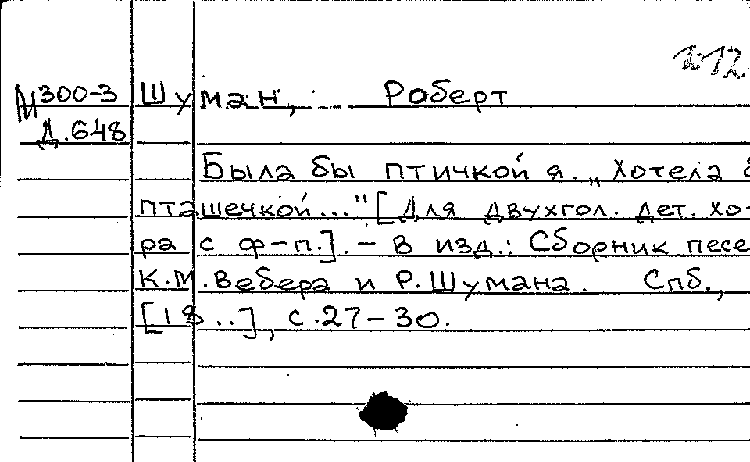 212
М300-3 Шуман, Роберт
Д.648
Была бы птичкой я. „Хотела б
пташечкой..." [Для двухгол. дет. хо-
ра с ф-п.]. - В изд.: Сборник песе
К.М. Вебера и Р. Шумана. Спб.,
[18..], с.27-30.